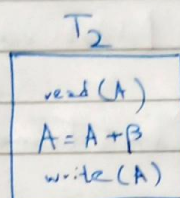 T₂
read(A)
A = A + β
write(A)